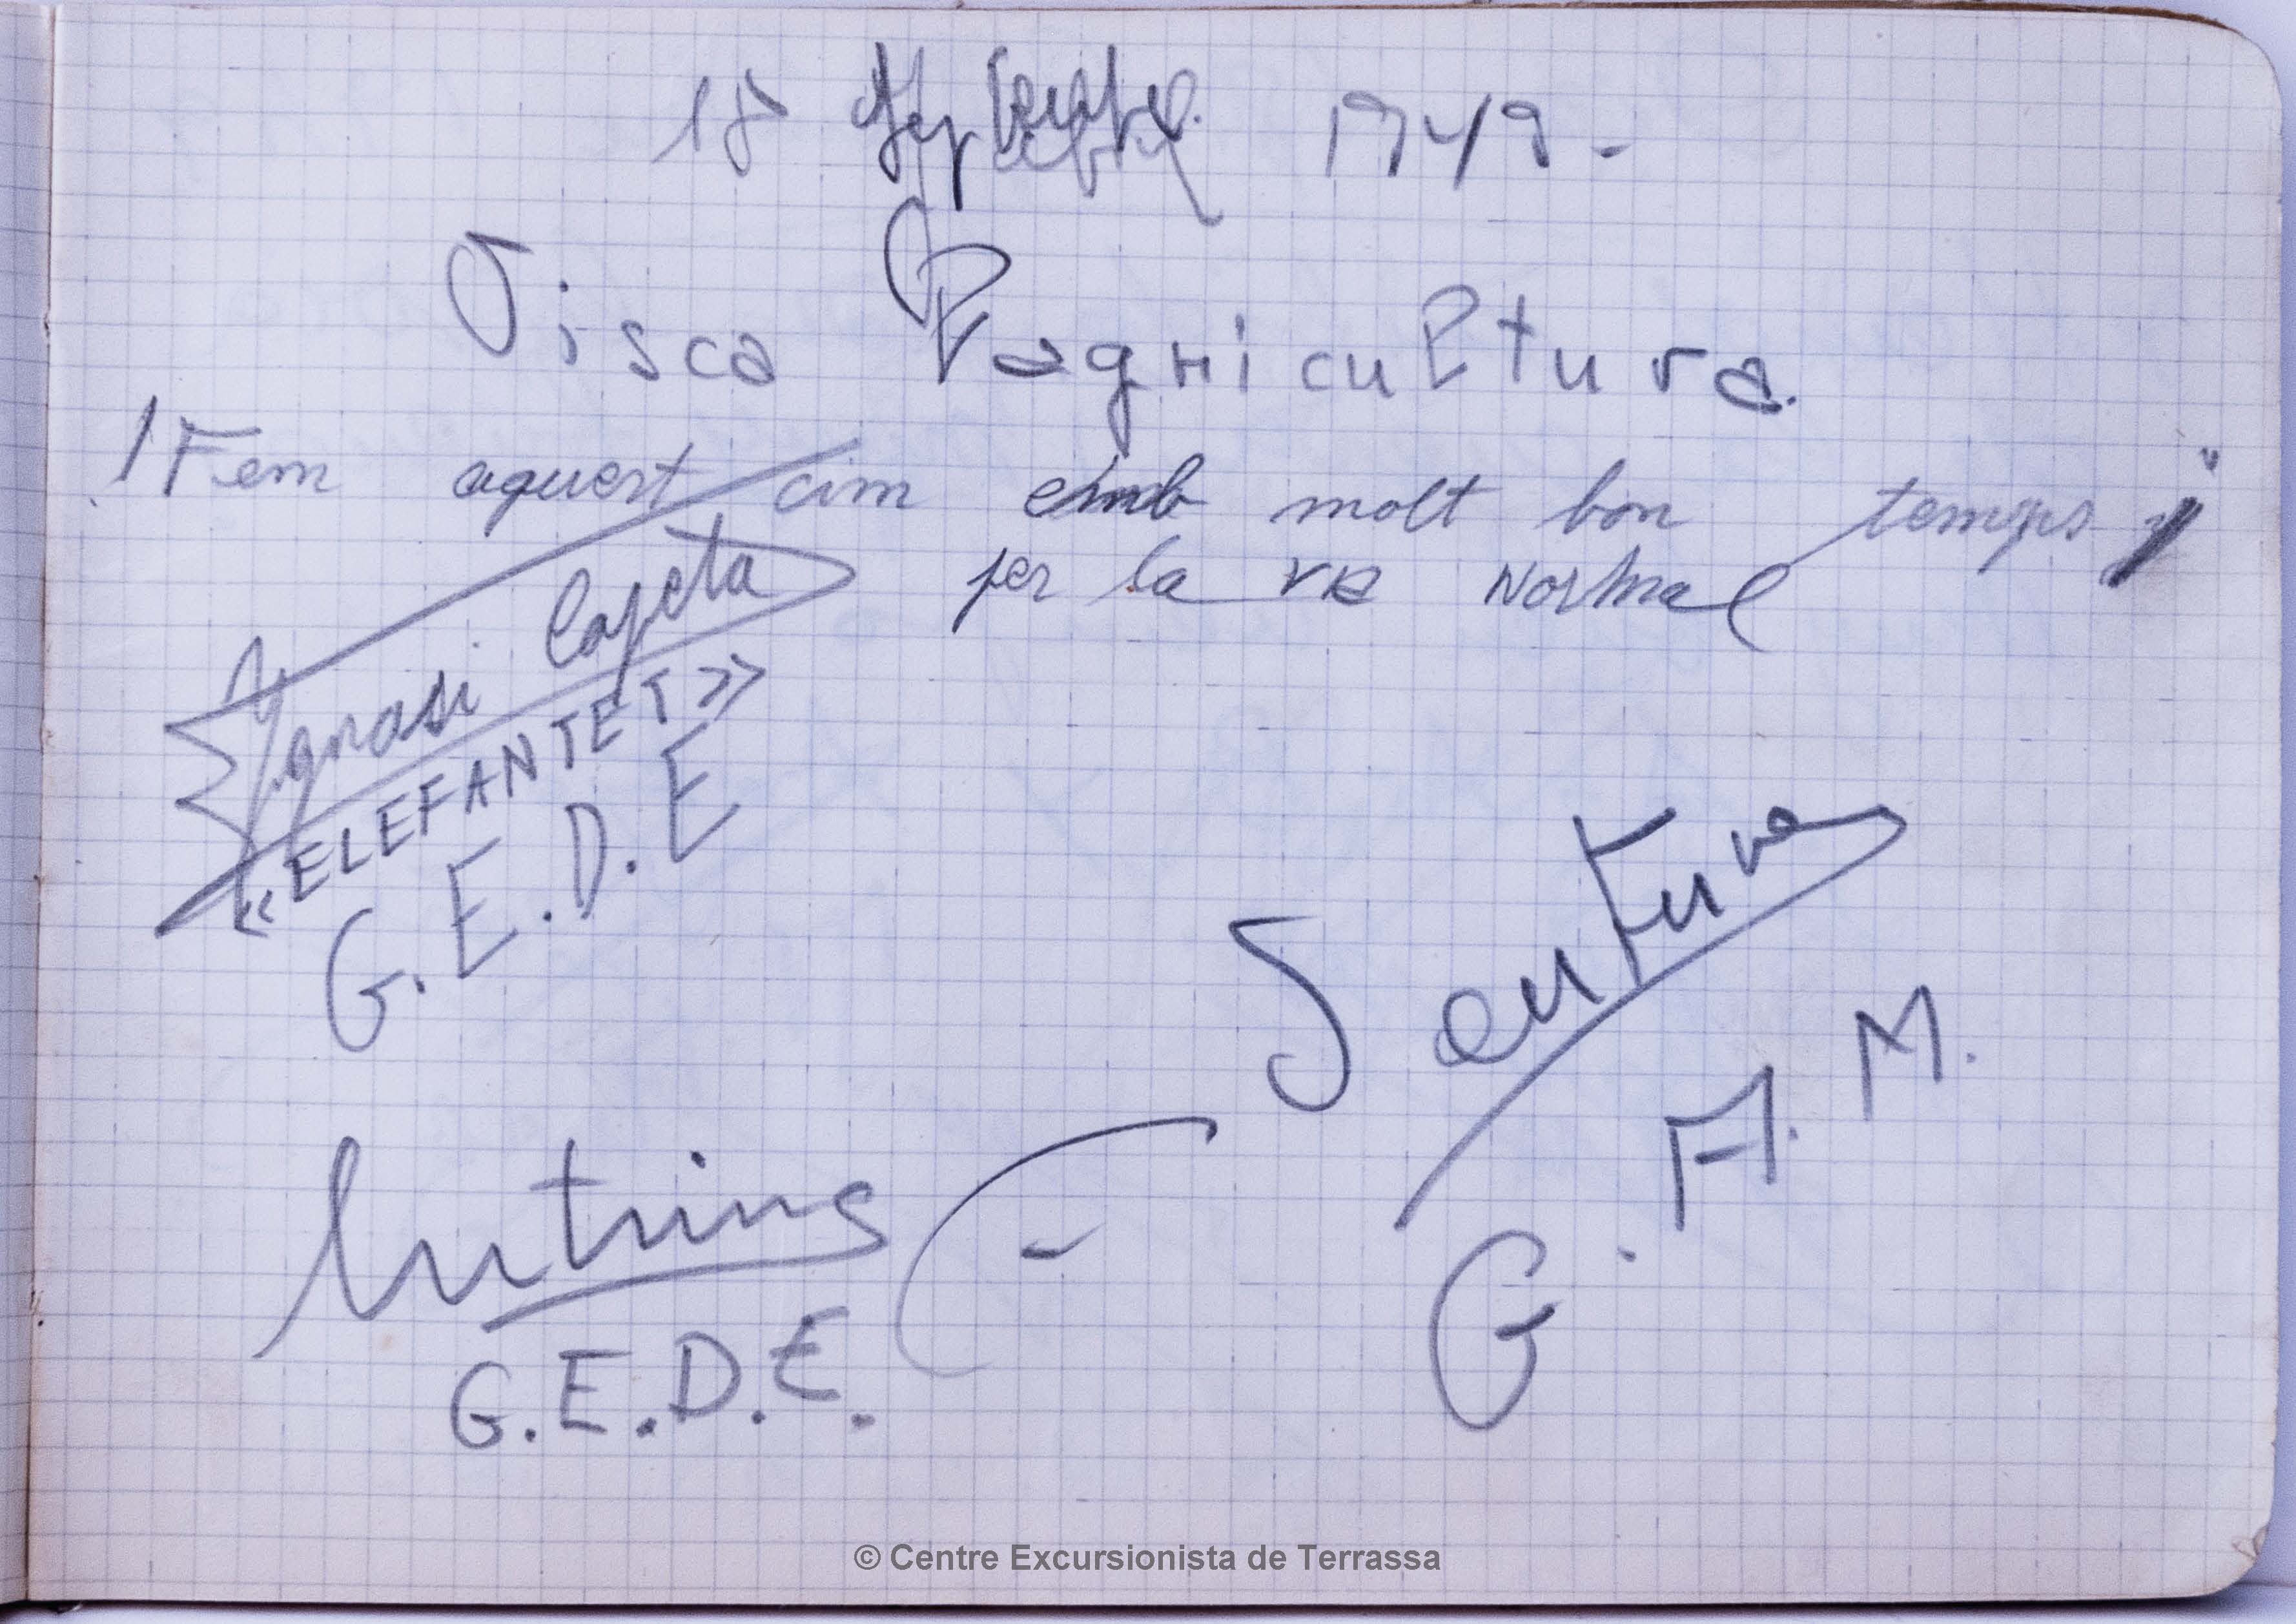 18 1949 -
Visca l'agricultura.
! Fem aquest cim amb molt bon temps
per la via Normal
Ignasi Capeta
«ELEFANTET»
G.E.D.E
Santuré
G.A.M.
G.E.D.E.
© Centre Excursionista de Terrassa